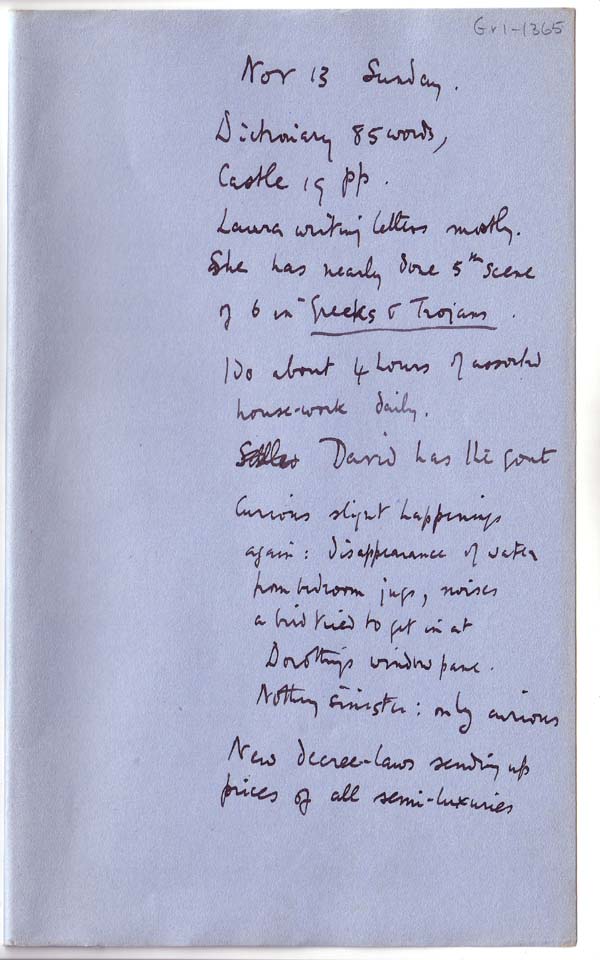 Gr1-1365
Nov 13 Sunday.
Dictionary 85 words,
Castle 19 pp.
Laura writing letters mostly.
She has nearly done 5th scene
of 6 in Greeks & Trojans.
I do about 4 hours of assorted
house-work daily.
David has the gout
Curious slight happenings
again: disappearance of water
from bedroom jugs, noises
a bird tried to get in at
Dorothy's window pane.
Nothing sinister: only curious
New decree-laws sending up
prices of all semi-luxuries